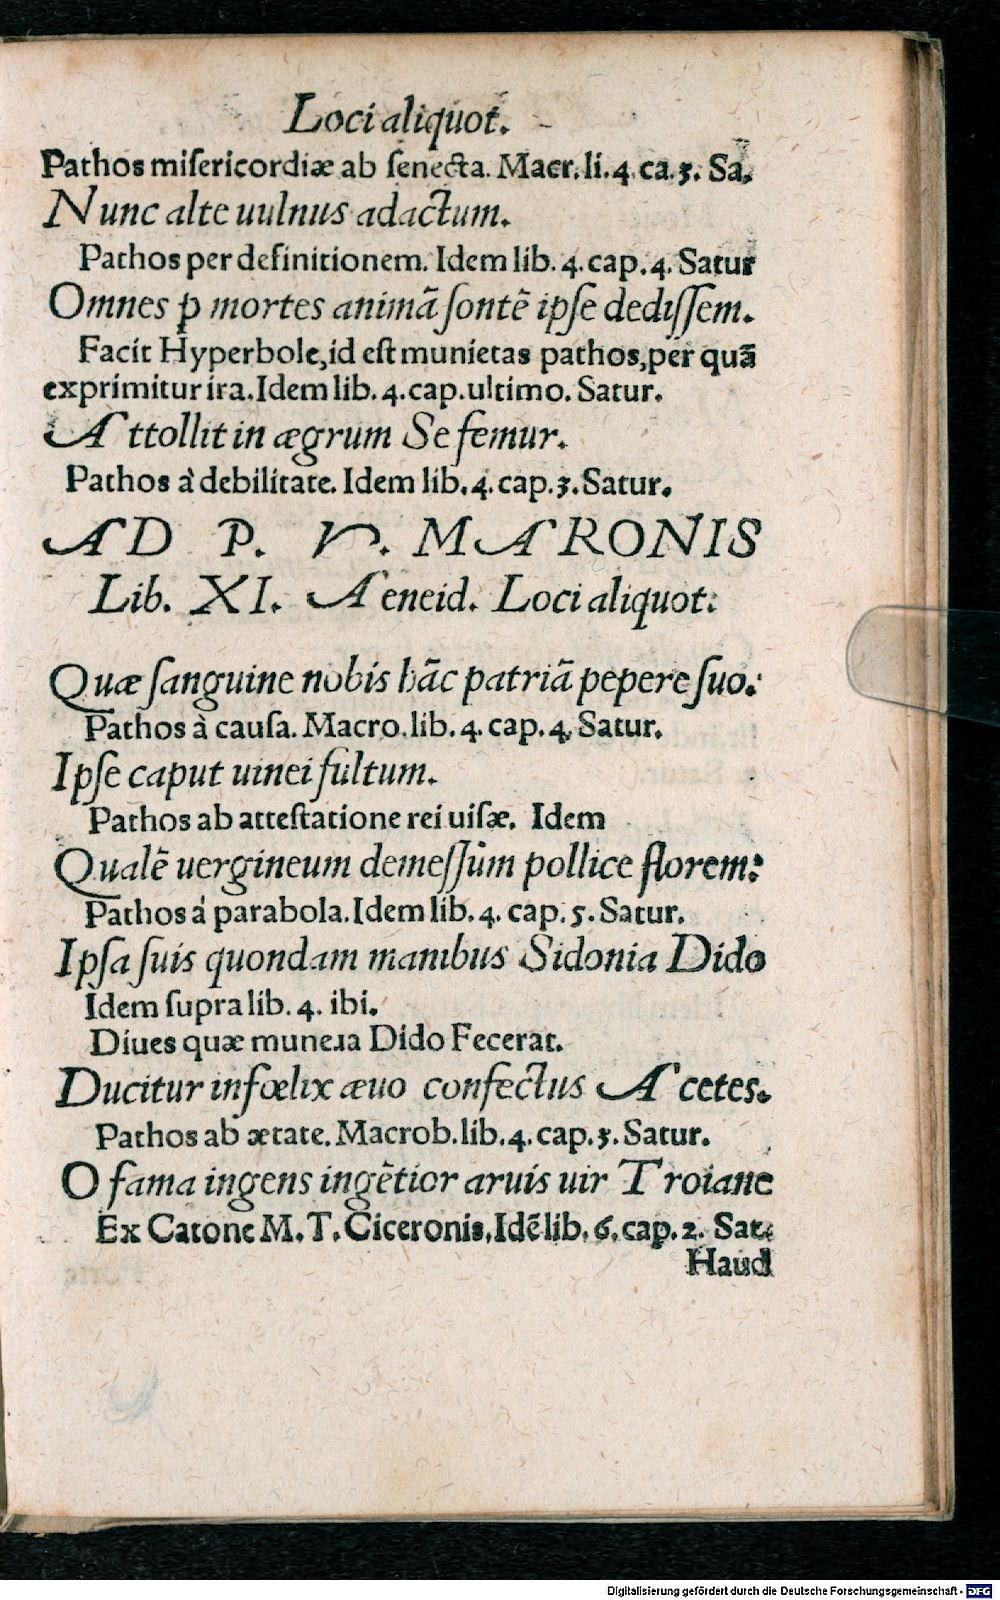 Loci aliquot.
Pathos miſericordiæ ab ſenecta. Macr. li. 4 ca. 3. Sa.
Nunc alte uulnus adactum.
Pathos per definitionem. Idem lib. 4. cap. 4. Satur
Omnes p̱ mortes animā ſontē ipſe dediſſem.
Facit Hyperbole, id eſt munietas pathos, per quā
exprimitur ira. Idem lib. 4. cap. ultimo. Satur.
Attollit in ægrum Se femur.
Pathos à debilitate. Idem lib. 4. cap. 3. Satur.
AD P. V. MARONIS
Lib. XI. Aeneid. Loci aliquot.
Quæ ſanguine nobis hāc patriā pepere ſuo.
Pathos à cauſa. Macro. lib. 4. cap. 4. Satur.
Ipſe caput uinei fultum.
Pathos ab atteſtatione rei uiſæ. Idem
Qualē uergineum demeſſùm pollice florem:
Pathos á parabola. Idem lib. 4. cap. 5. Satur.
Ipſa ſuis quondam manibus Sidonia Dido
Idem ſupra lib. 4. ibi.
Diues quæ munera Dido Fecerat.
Ducitur infœlix æuo confectus Acetes.
Pathos ab ætate. Macrob. lib. 4. cap. 3. Satur.
O fama ingens ingētior aruis uir Troiane
Ex Catone M. T. Ciceronis, Idē lib. 6. cap. 2. Sat.
Haud
Digitalisierung gefördert durch die Deutsche Forschungsgemeinschaft - DFG